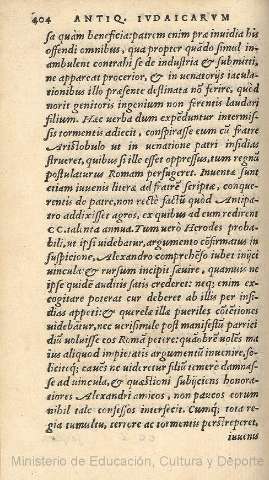 404 ANTIQ. IVDAICARVM
sa quàm beneficia: patrem enim præ inuidia his
offendi omnibus, qua propter quãdo simul in-
ambulent contrahi se de industria & submitti,
ne appareat procerior, & in uenatorijs iacula-
tionibus illo præsente destinata nõ ferire, quòd
norit genitoris ingenium non ferentis laudari
filium. Hæc uerba dum expẽduntur intermis-
sis tormentis adiecit, conspirasse eum cũ fratre
Aristobulo ut in uenatione patri insidias
strueret, quibus si ille esset oppressus, tum regnũ
postulaturus Romam perfugeret. Inuentæ sunt
etiam iuuenis literæ ad fratrẽ scriptæ, conque-
rentis de patre, non rectè factũ quòd Antipa-
tro addixisset agros, ex quibus ad eum redirent
CC. talenta annua. Tum uerò Herodes proba-
bili, ut ipsi uidebatur, argumento cõfirmatus in
suspicione, Alexandro comprehẽso iubet inijci
uincula: & rursum incipit sæuire, quamuis ne
ipse quidẽ auditis satis crederet: neq; enim ex-
cogitare poterat cur deberet ab illis per insi-
dias appeti: & querelæ illæ pueriles cõtẽtiones
uidebãtur, nec uerisimile post manifestũ parrici
diũ uoluisse eos Romã petere: quãobrẽ uolẽs ma
ius aliquod impietatis argumentũ inuenire, so-
licitéq; cauẽs ne uideretur filiũ temerè damnas-
se ad uincula, & quæstioni subijciens honora-
tiores Alexandri amicos, non paucos eorum
nihil tale confessos interfecit. Cumq; tota re-
gia tumultu, terrore ac tormentis perstreperet,
iuuenis
Ministerio de Educación, Cultura y Deporte